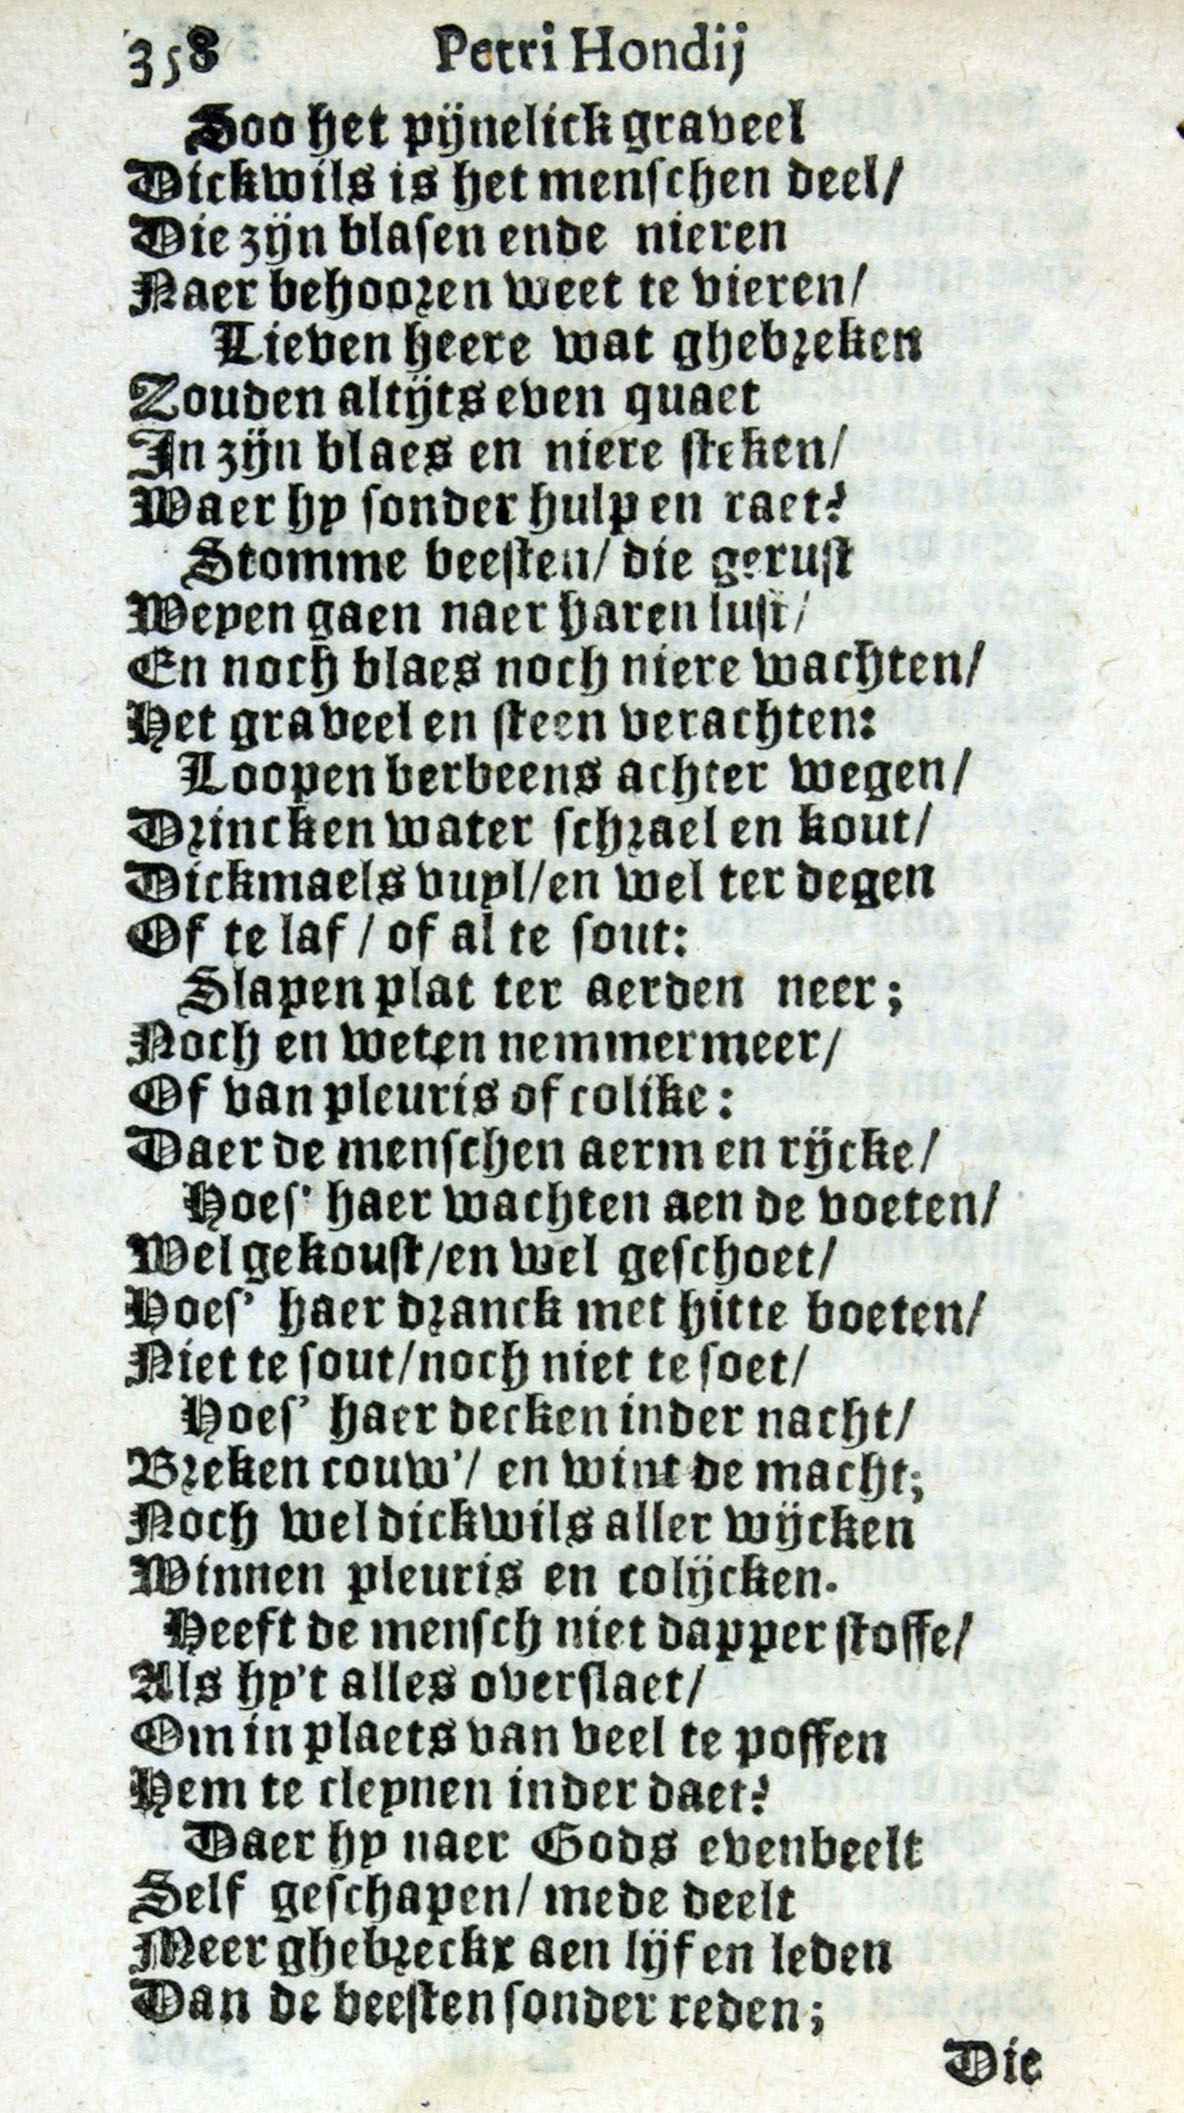 358 Petri Hondij
Soo het pijnelick graveel
Dickwils is het menschen deel/
Die zijn blasen ende nieren
Naer behooren weet te vieren/
Lieven heere wat ghebreken
Zouden altijts even quaet
In zijn blaes en niere steken/
Waer hy sonder hulp en raet?
Stomme beesten/ die gerust
Weyen gaen naer haren lust/
En noch blaes noch niere wachten/
Het graveel en steen verachten:
Loopen berbeens achter wegen/
Drincken water schrael en kout/
Dickmaels vuyl/en wel ter degen
Of te laf/ of al te sout:
Slapen plat ter aerden neer;
Noch en weten nemmermeer/
Of van pleuris of colike:
Daer de menschen aerm en rijcke/
Hoes' haer wachten aen de voeten/
Wel gekoust/en wel geschoet/
Hoes' haer dranck met hitte boeten/
Niet te sout/noch niet te soet/
Hoes' haer decken inder nacht/
Breken couw'/ en wint de macht;
Noch wel dickwils aller wijcken
Winnen pleuris en colijcken.
Heeft de mensch niet dapper stoffe/
Als hy't alles overslaet/
Om in plaets van veel te poffen
Hem te cleynen inder daet?
Daer hy naer Gods evenbeelt
Self geschapen/ mede deelt
Meer ghebreckx aen lijf en leden
Dan de beesten sonder reden;
Die